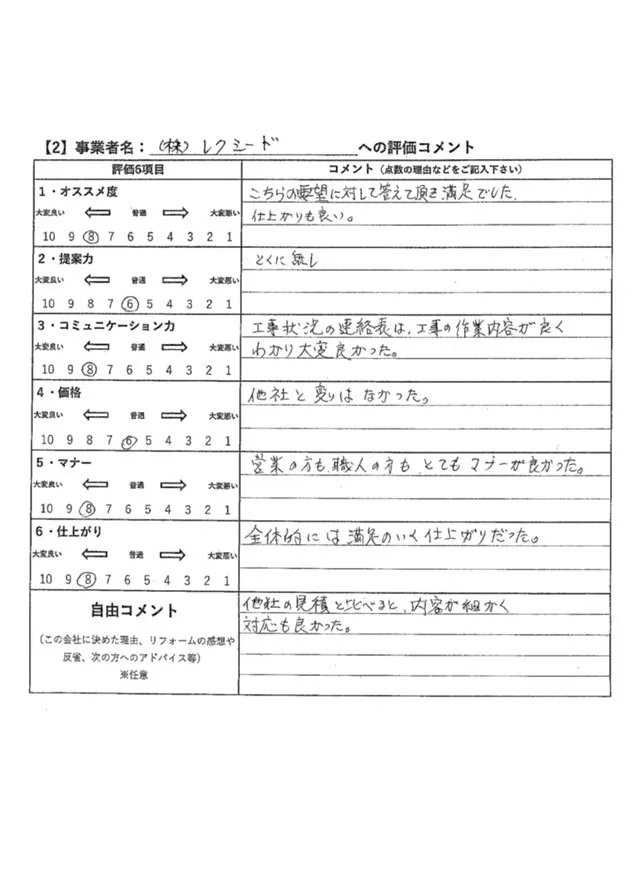 【2】事業者名：(株)レクシード への評価コメント
評価6項目 コメント（点数の理由などをご記入下さい）
1・オススメ度
大変良い 普通 大変悪い
10 9 8 7 6 5 4 3 2 1
こちらの要望に対して答えて頂き満足でした.
仕上がりも良い。
2・提案力
大変良い 普通 大変悪い
10 9 8 7 6 5 4 3 2 1
とくに無し
3・コミュニケーション力
大変良い 普通 大変悪い
10 9 8 7 6 5 4 3 2 1
工事状況の連絡表は、工事の作業内容が良く
わかり大変良かった。
4・価格
大変良い 普通 大変悪い
10 9 8 7 6 5 4 3 2 1
他社と変りはなかった。
5・マナー
大変良い 普通 大変悪い
10 9 8 7 6 5 4 3 2 1
営業の方も、職人の方も、とてもマナーが良かった。
6・仕上がり
大変良い 普通 大変悪い
10 9 8 7 6 5 4 3 2 1
全体的には満足のいく仕上がりだった。
自由コメント
（この会社に決めた理由、リフォームの感想や
反省、次の方へのアドバイス等）
※任意
他社の見積と比べると、内容が細かく
対応も良かった。